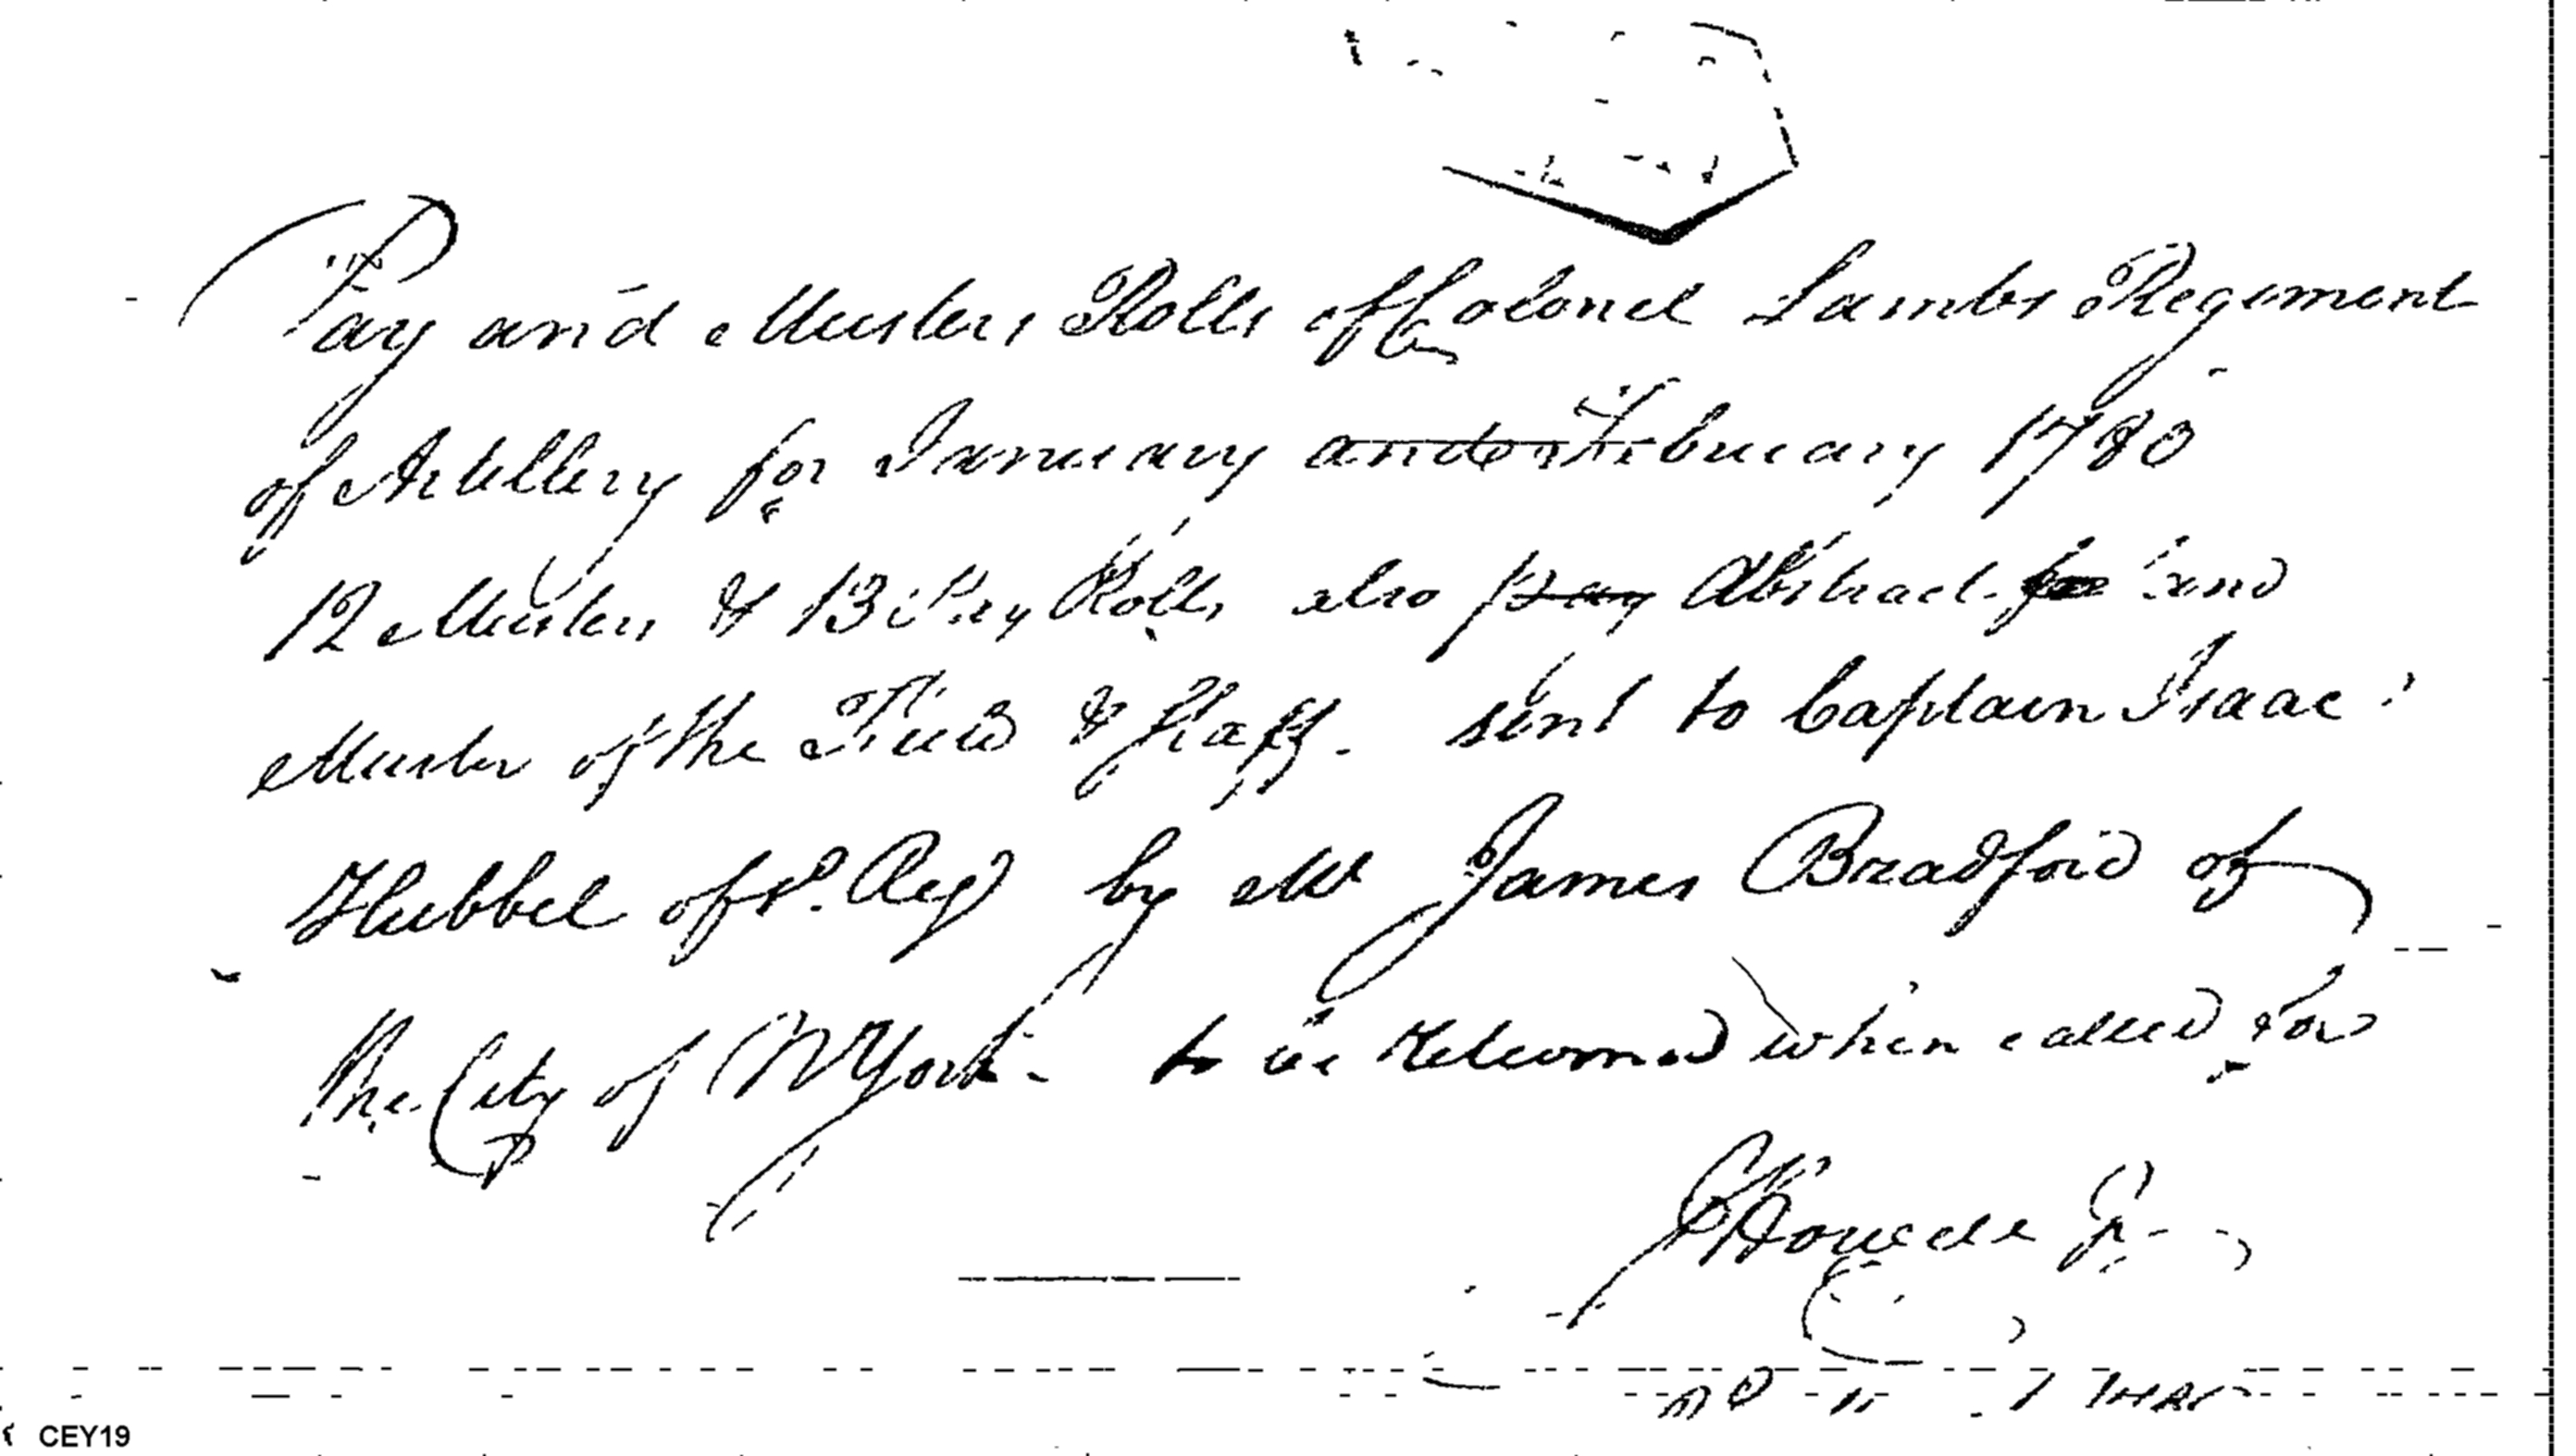 Pay and Musters Rolls of Colonel Lambs Regiment
of Artillery for January and February 1780
12 Musters & 13 Pay Rolls also pay Abstract and
Muster of the Field & Staff. sent to Captain Isaac
Hubbel of sd. Regt by Mr James Bradford of
the City of NYork - to be returned when called for
J Howell Jr
CEY19